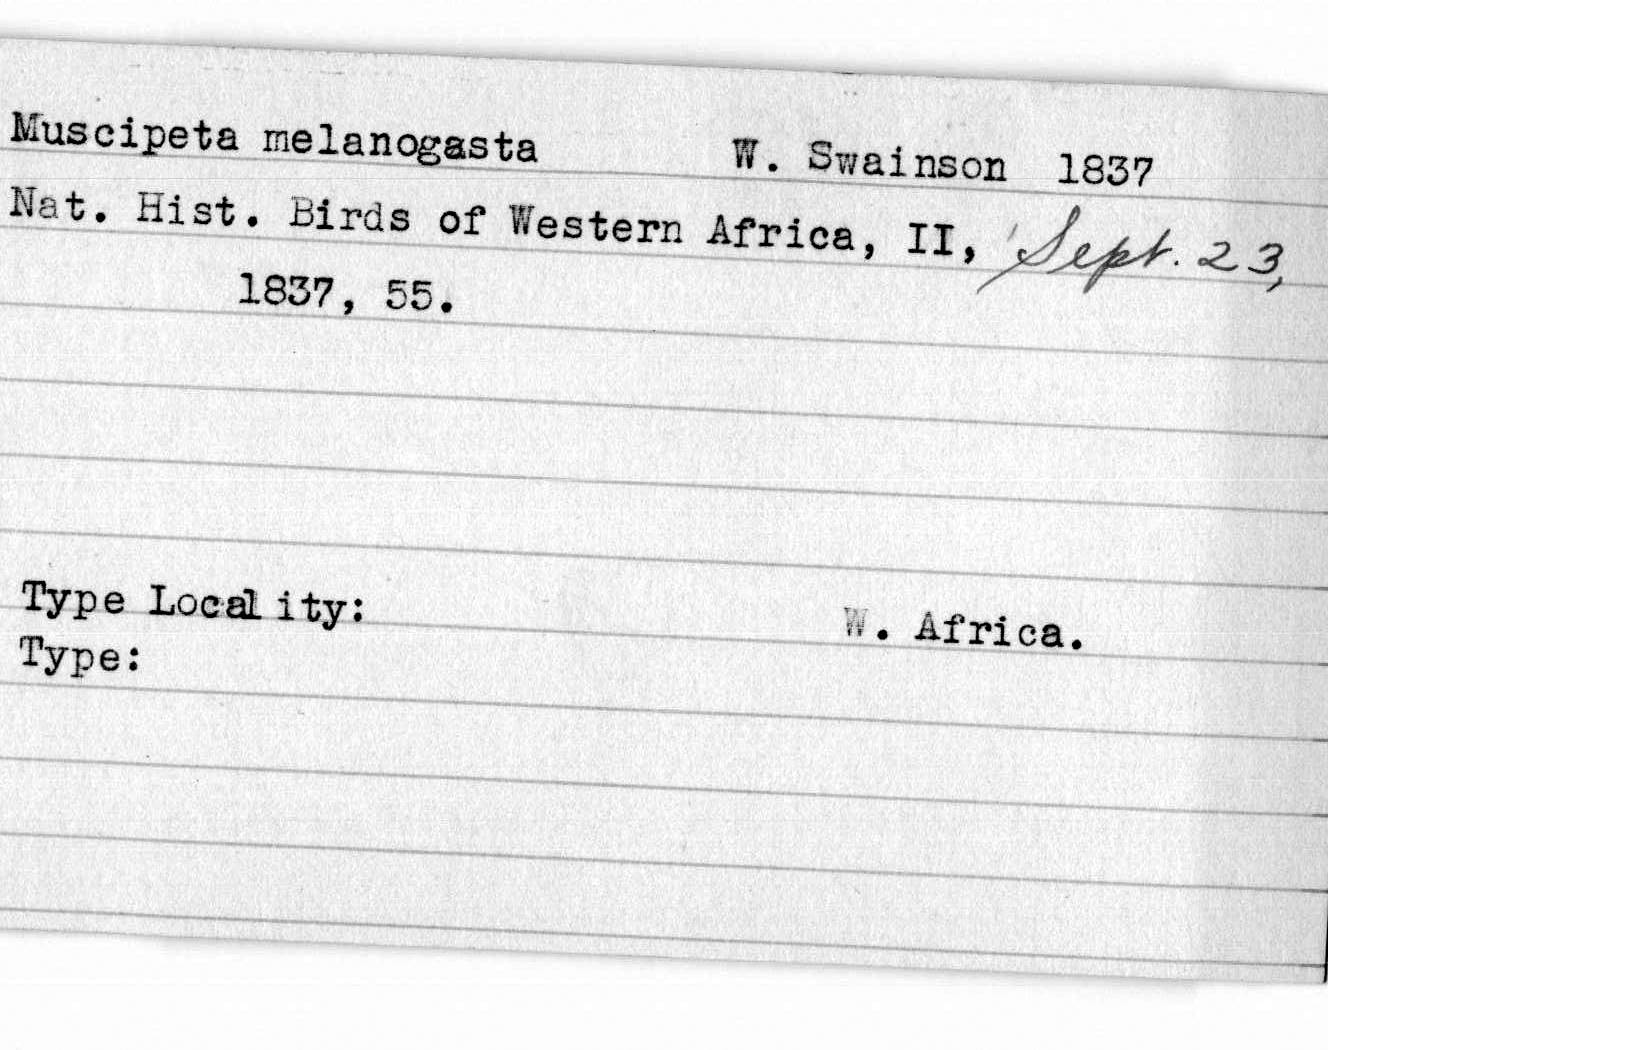 Muscipeta melanogasta W. Swainson 1837
Nat. Hist. Birds of Western Africa, II, Sept. 23,
1837, 55.
Type Locality: W. Africa.
Type: